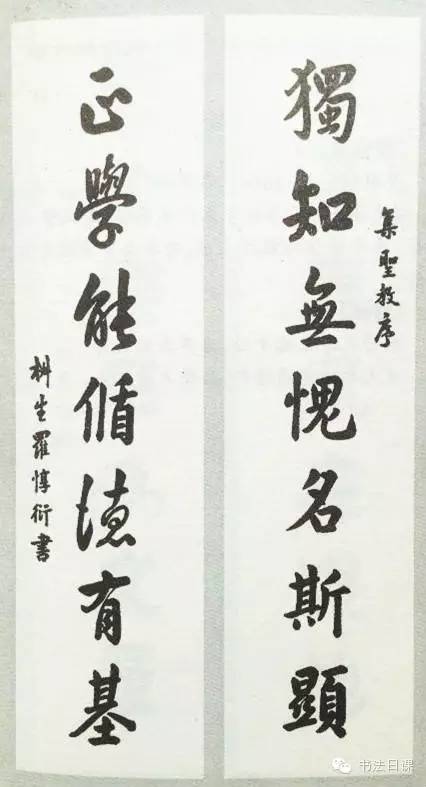 集聖教序
獨知無愧名斯顯
正學能循德有基
椒生羅惇衍書
书法日课